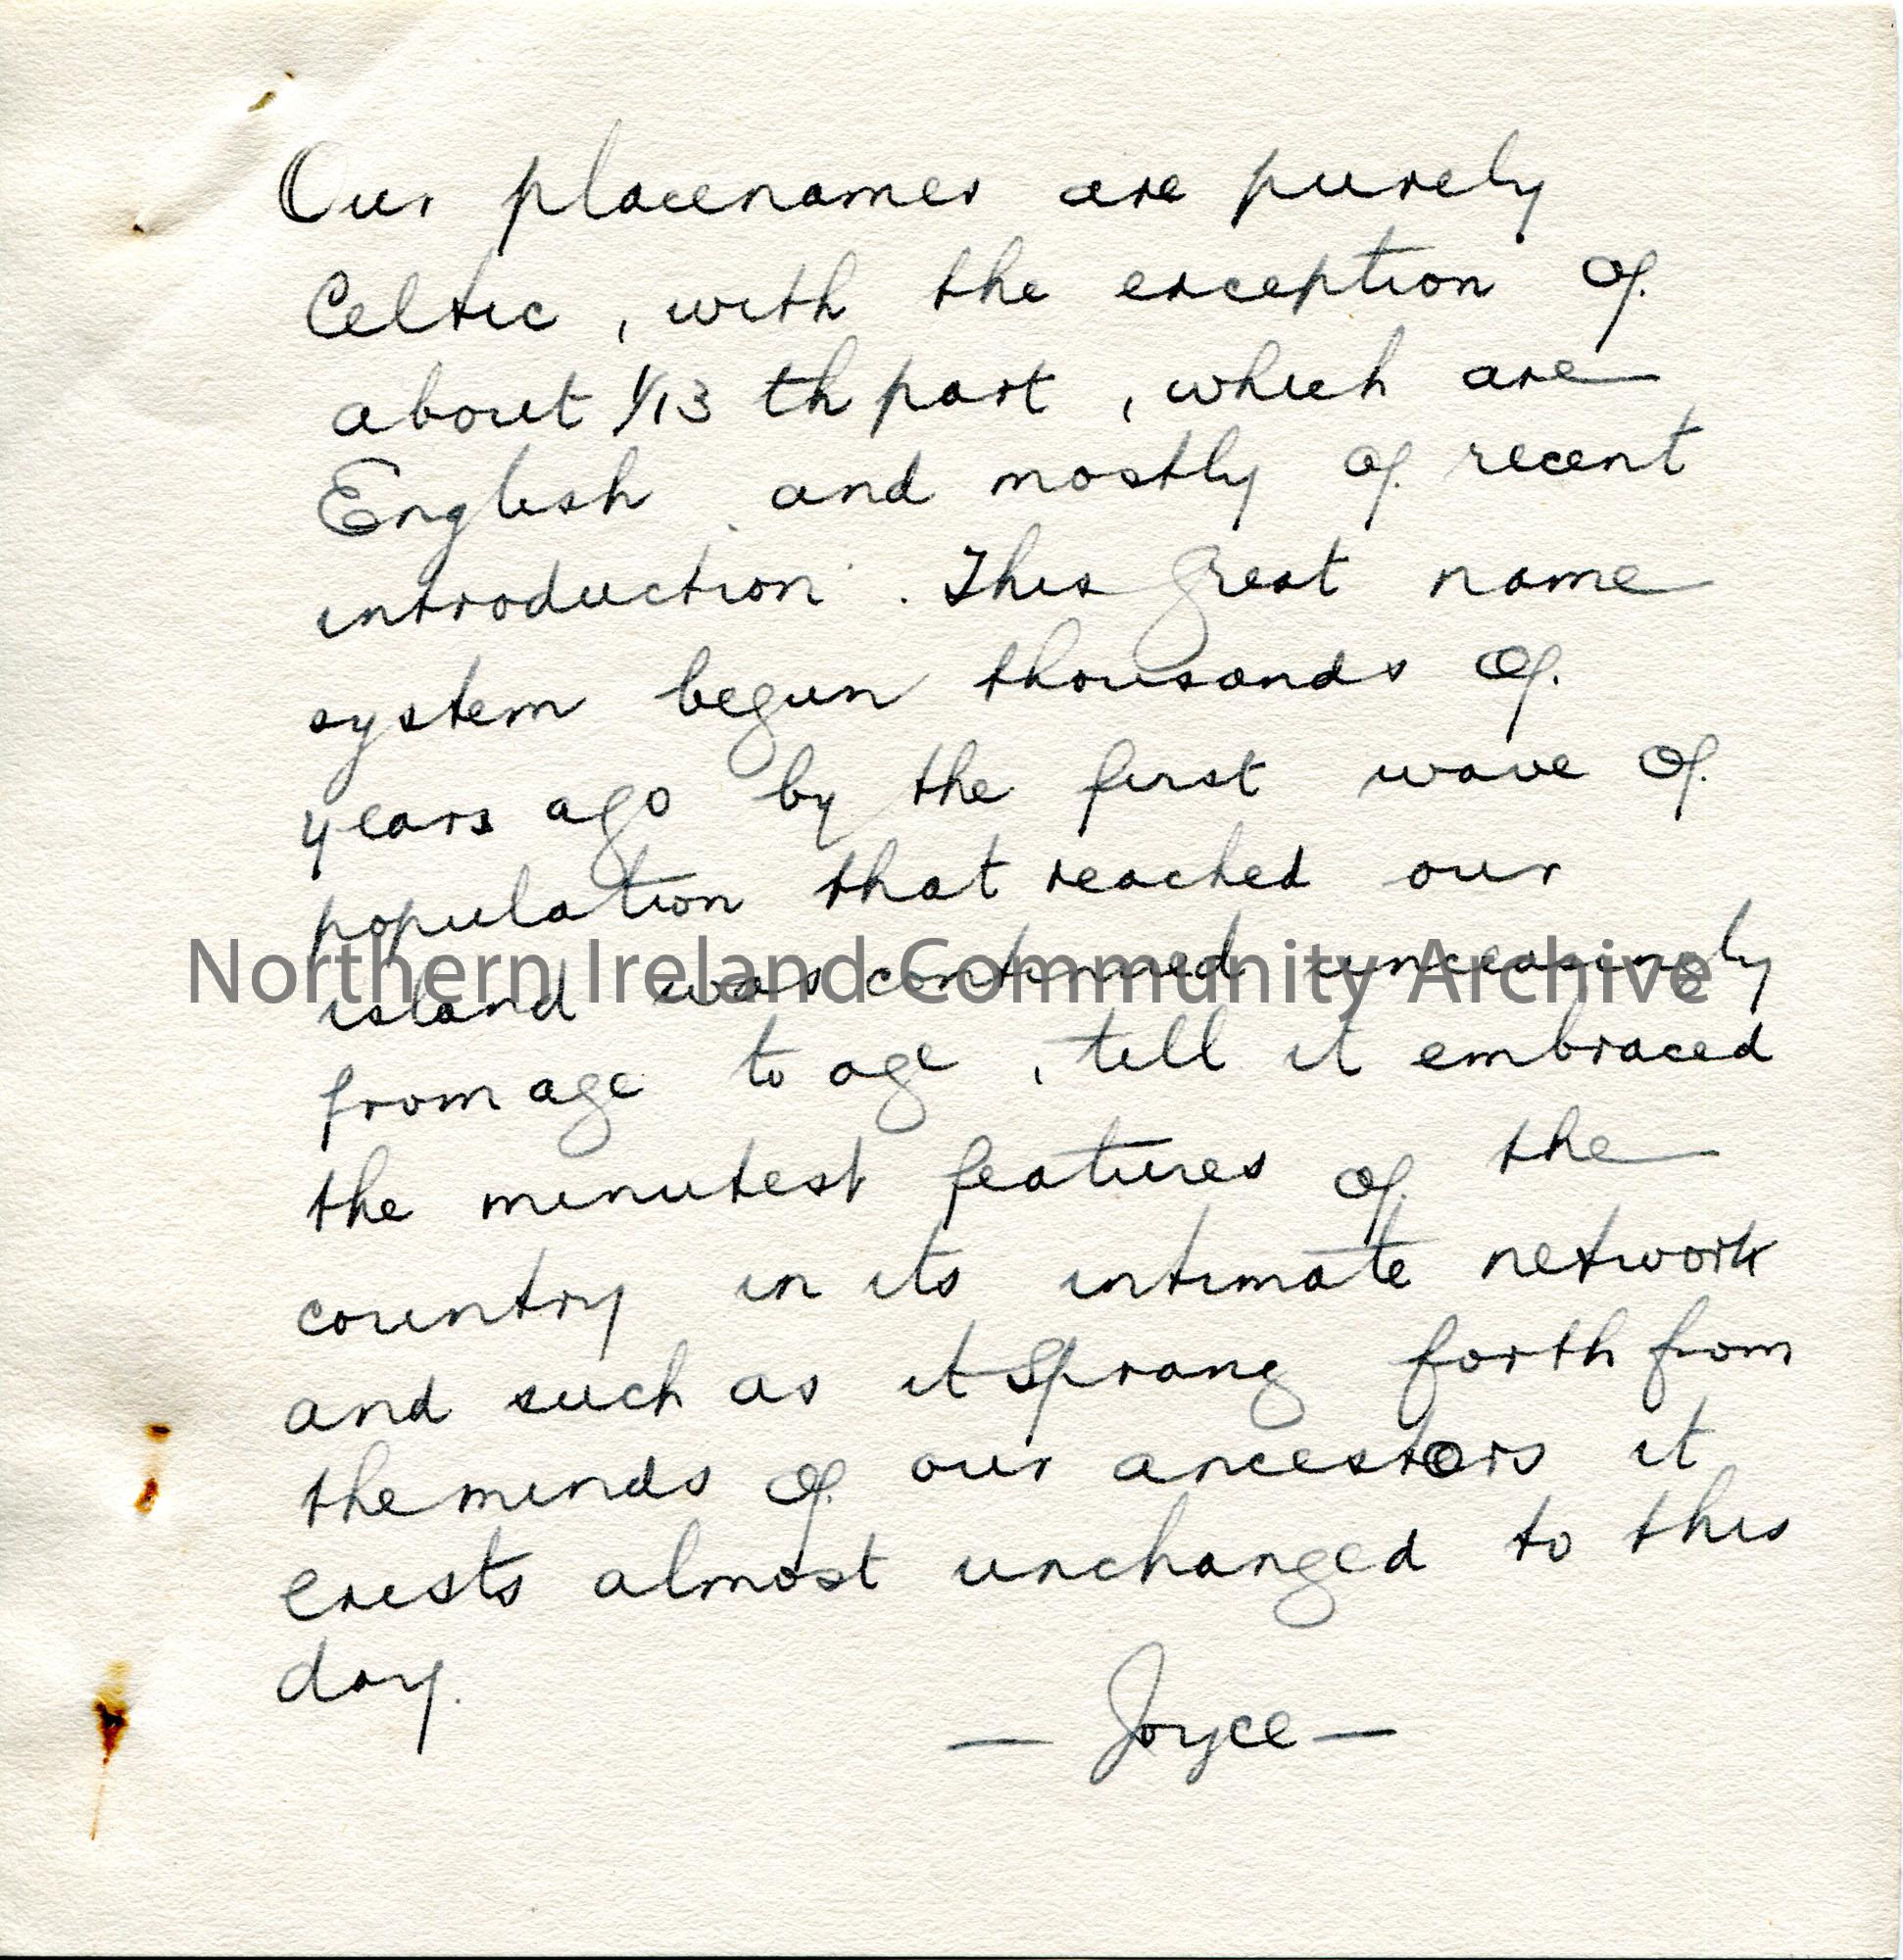 Our placenames are purely
Celtic, with the exception of
about 1/13 th part, which are
English and mostly of recent
introduction. This great name
system begun thousands of
years ago by the first wave of
population that reached our
island was continued unceasingly
Northern Ireland Community Archive
from age to age, till it embraced
the minutest features of the
country in its intimate network
and such as it sprang forth from
the minds of our ancestors it
exists almost unchanged to this
day.
— Joyce —